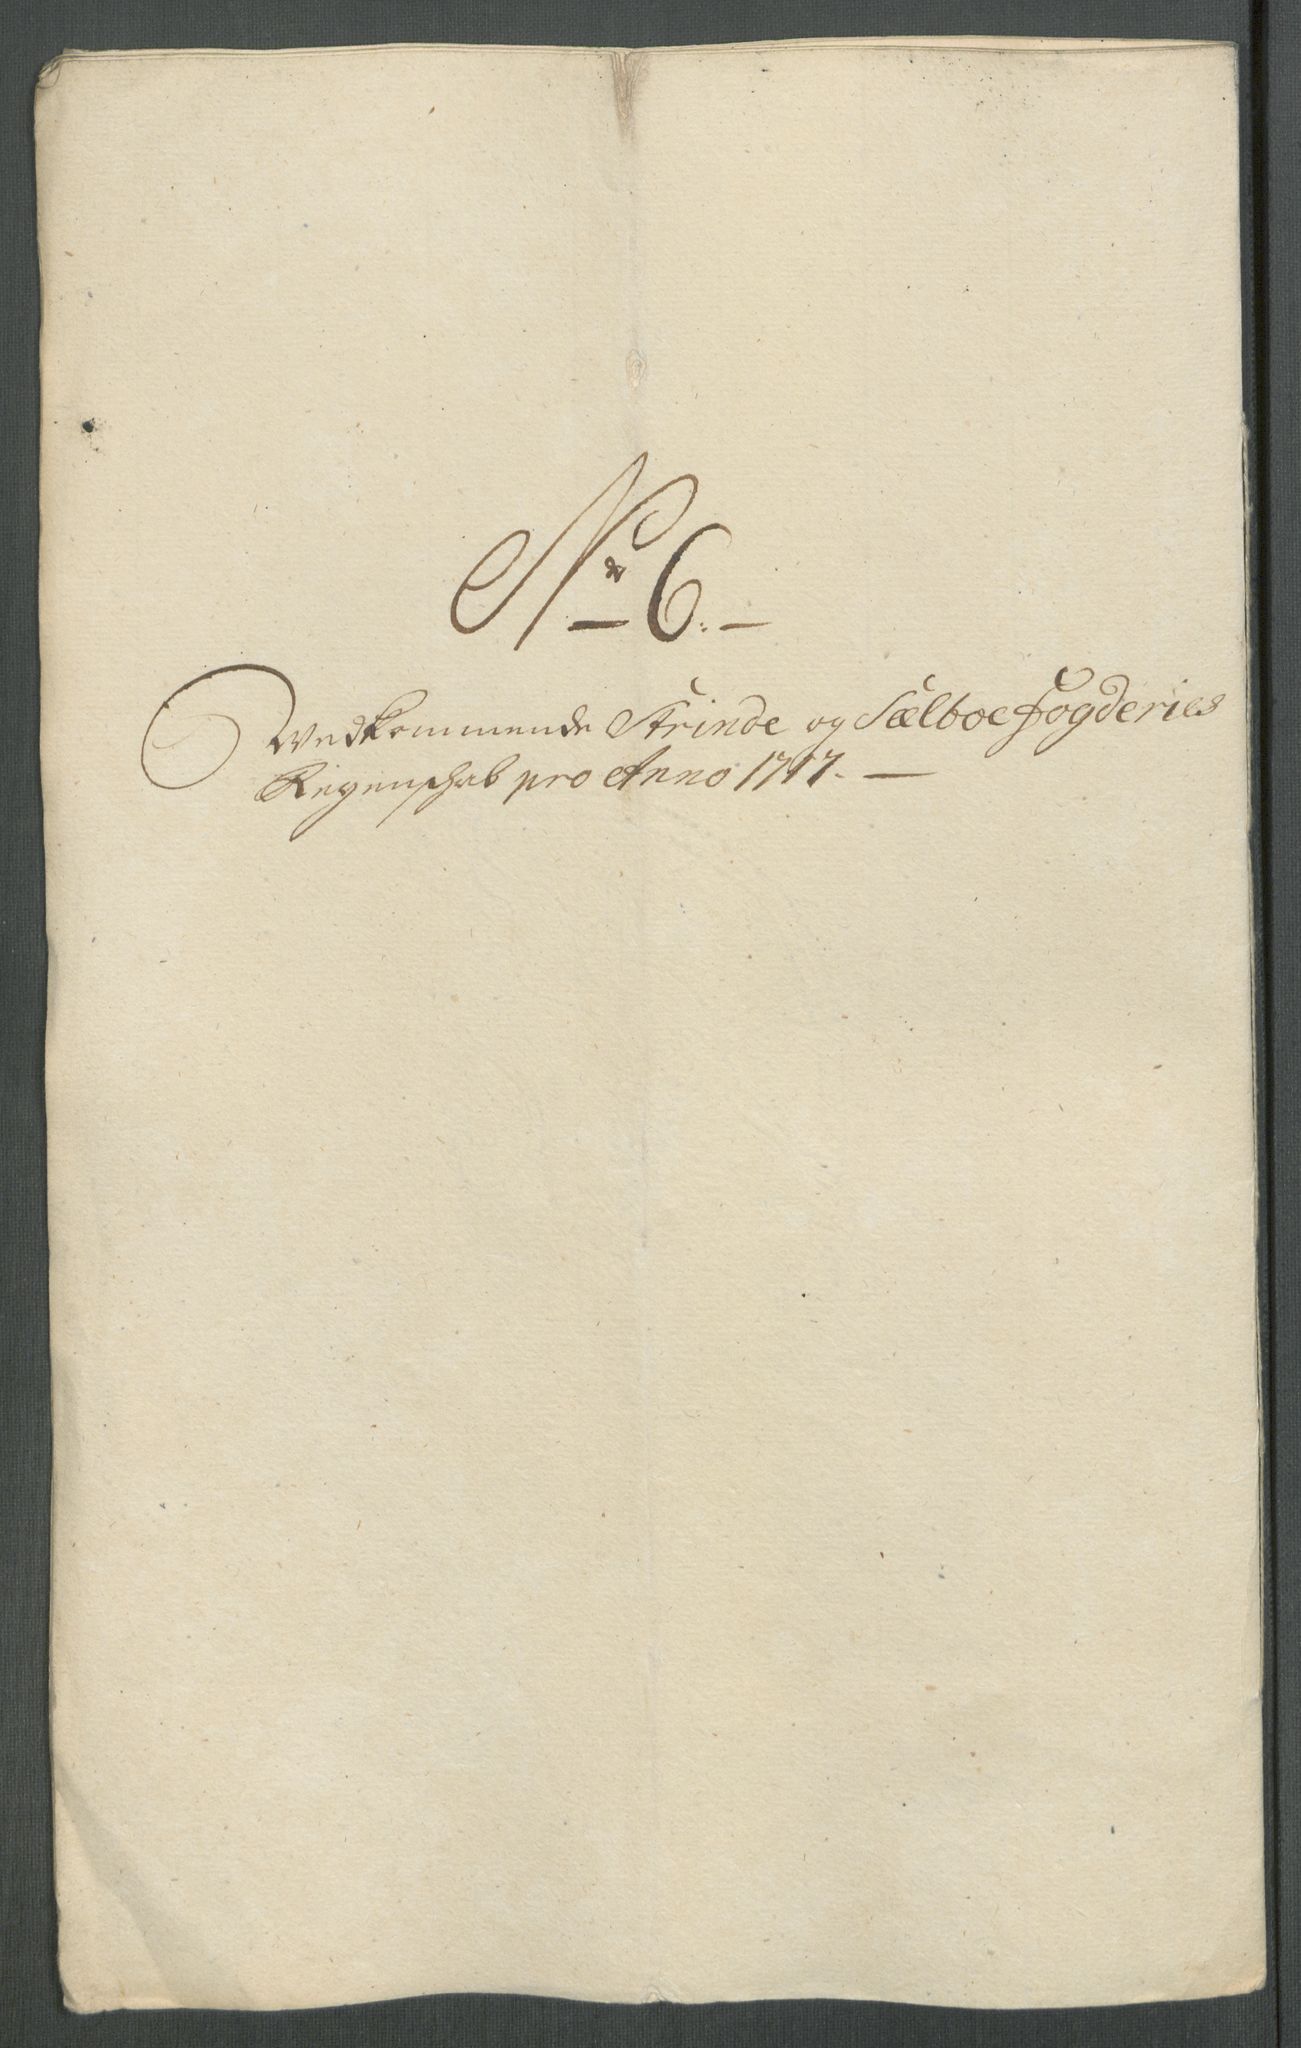 No 6.
Vedkommende Strinde og Sælboe Fogderies
Regenschab pro Anno 1717.